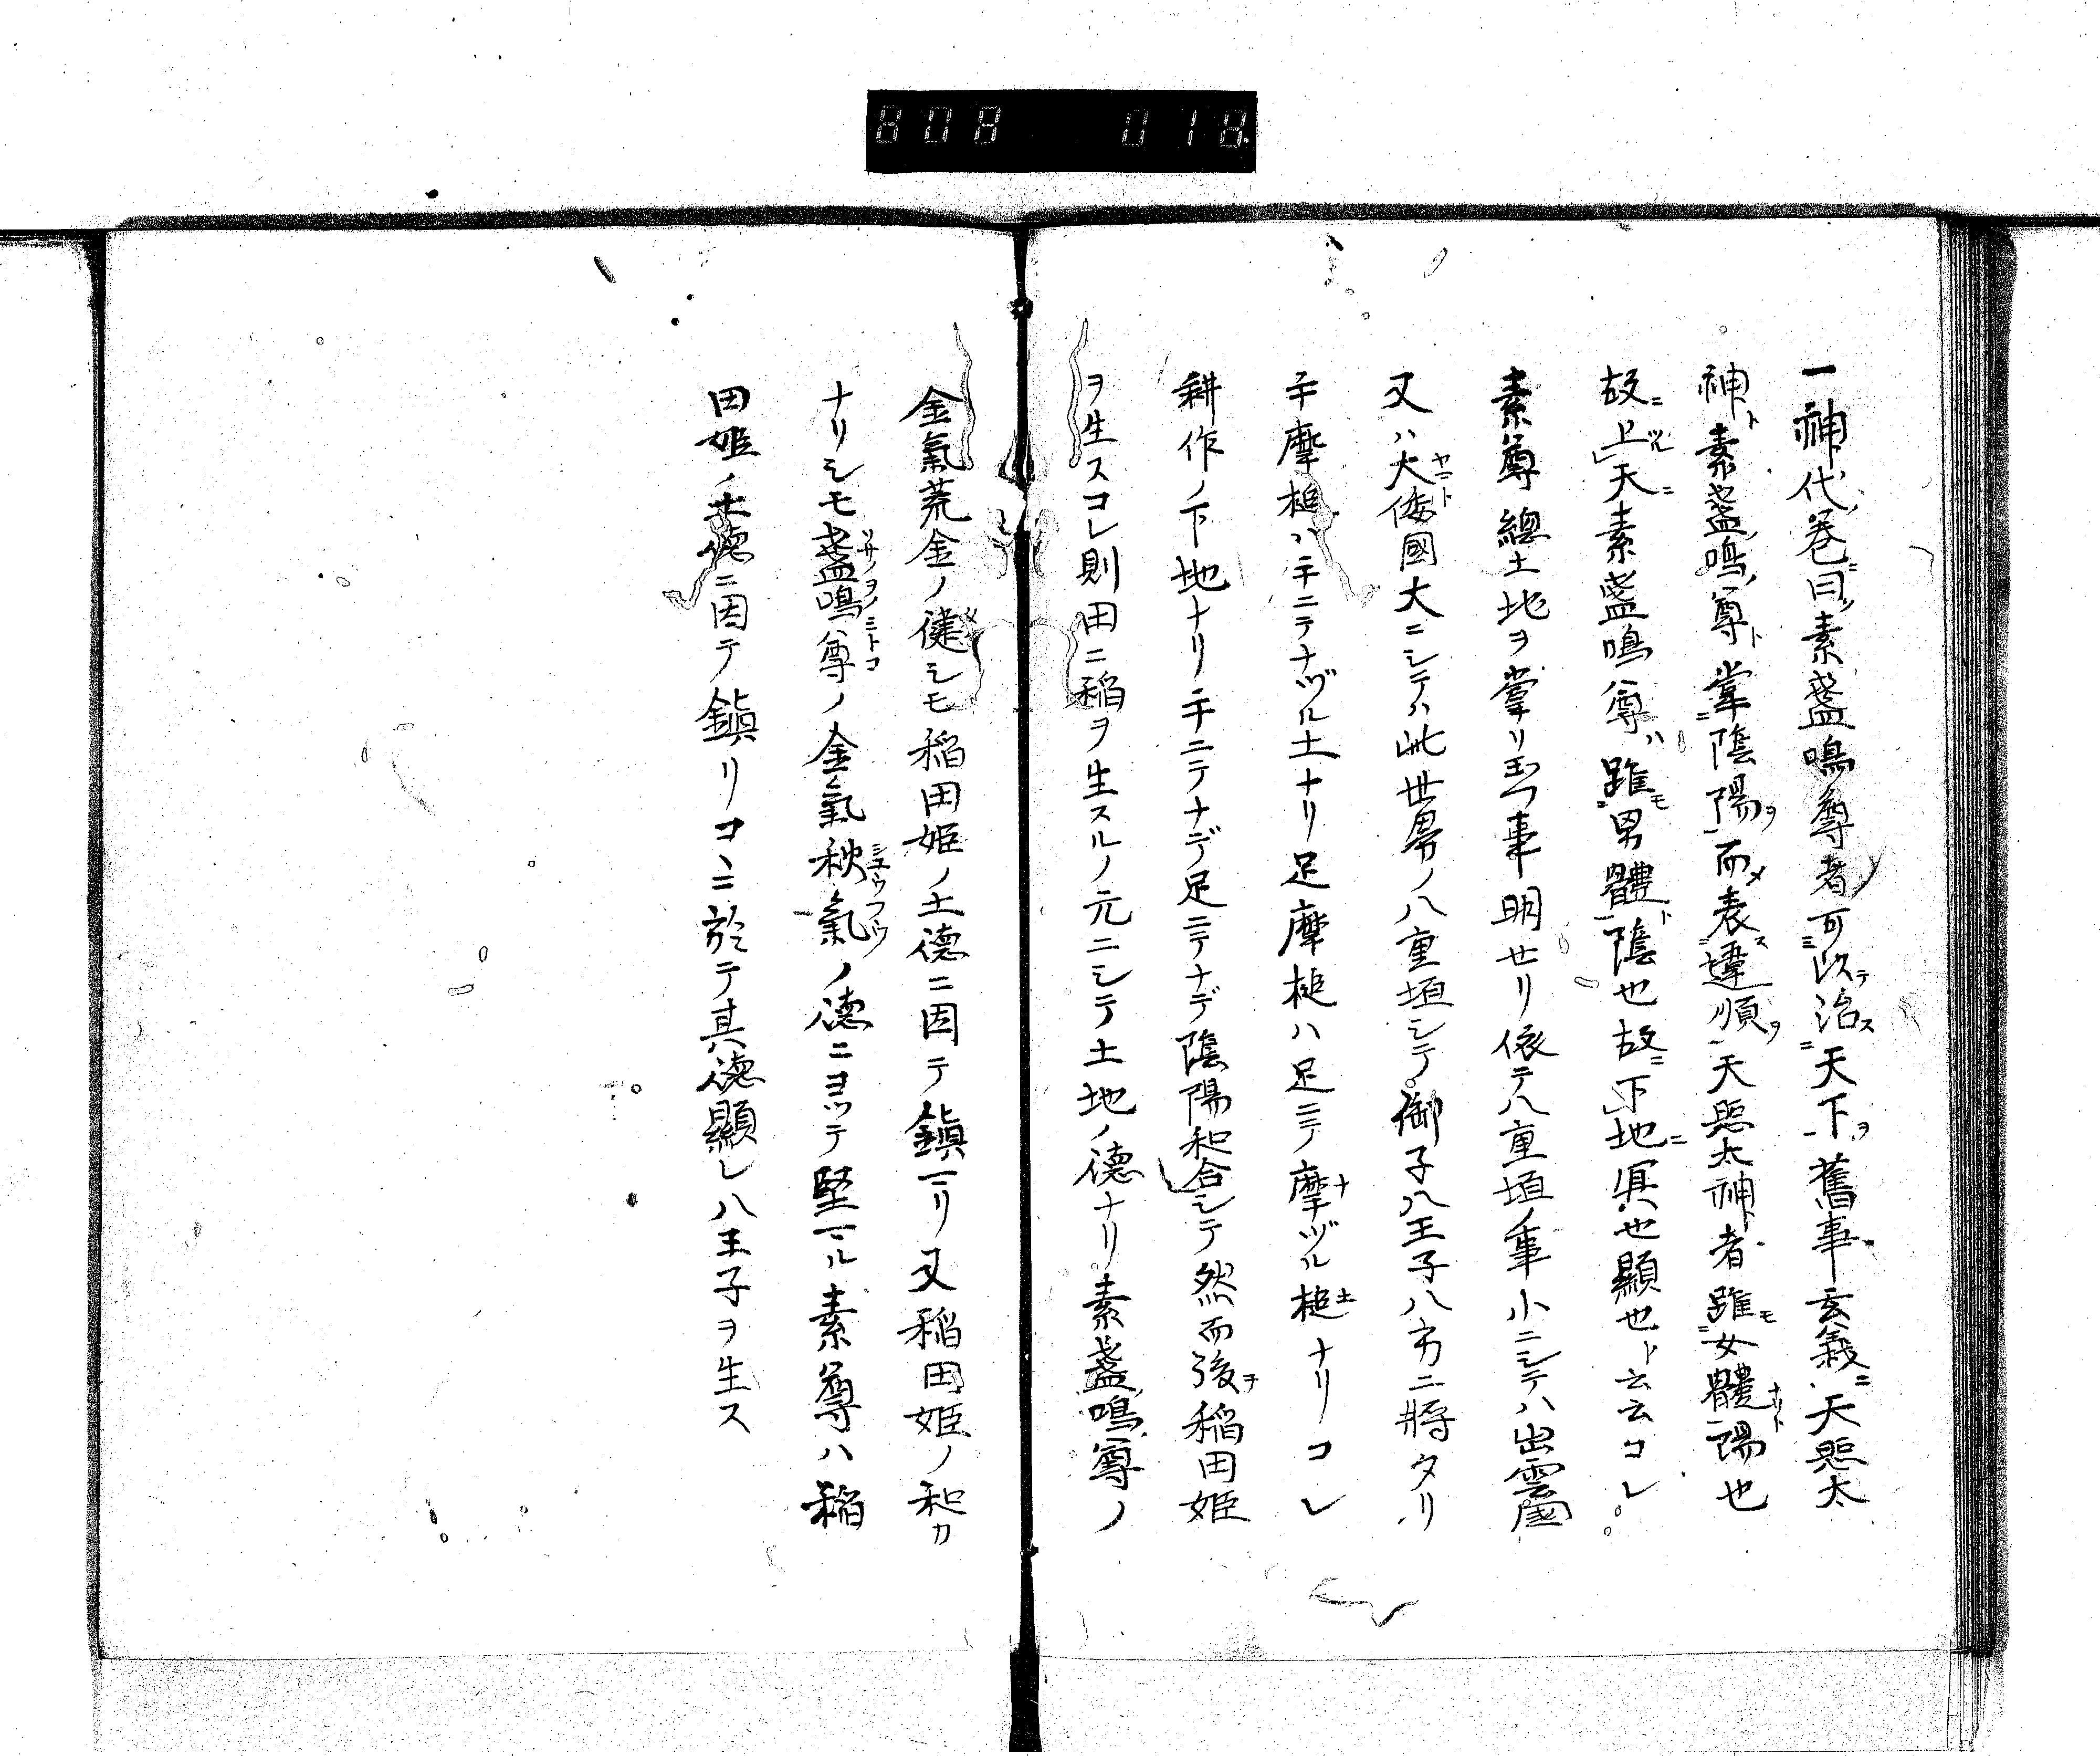 808 018
一神代巻曰素盞嗚尊者可以治天下舊事玄義天照太
神素盞嗚尊掌陰陽而表違順天照太神者雖女體陽也
故上天素盞嗚尊雖男體陰也故下地冥也顯也ト云云コレ
素尊總土地ヲ掌リ玉フ事明セリ依テ八重垣ノ事小ニシテハ出雲國
又ハ大倭國大ニシテハ此世界ノ八重垣シテ御子八王子八方ニ將タリ
手摩槌ハ手ニテナヅル土ナリ足摩槌ハ足ニテ摩ヅル槌ナリコレ
耕作ノ下地ナリ手ニテナデ足ニテナデ陰陽和合シテ然而後稲田姫
ヲ生スコレ則田ニ稲ヲ生スルノ元ニシテ土地ノ徳ナリ素盞嗚尊ノ
金氣荒金ノ健シモ稲田姫ノ土徳ニ因テ鎭マリ又稲田姫ノ和カ
ナリシモ盞嗚尊ノ金氣秋氣ノ徳ニヨツテ堅マル素尊ハ稲
田姫ノ土徳ニ因テ鎭リコヽニ於テ其徳顯レ八王子ヲ生ス